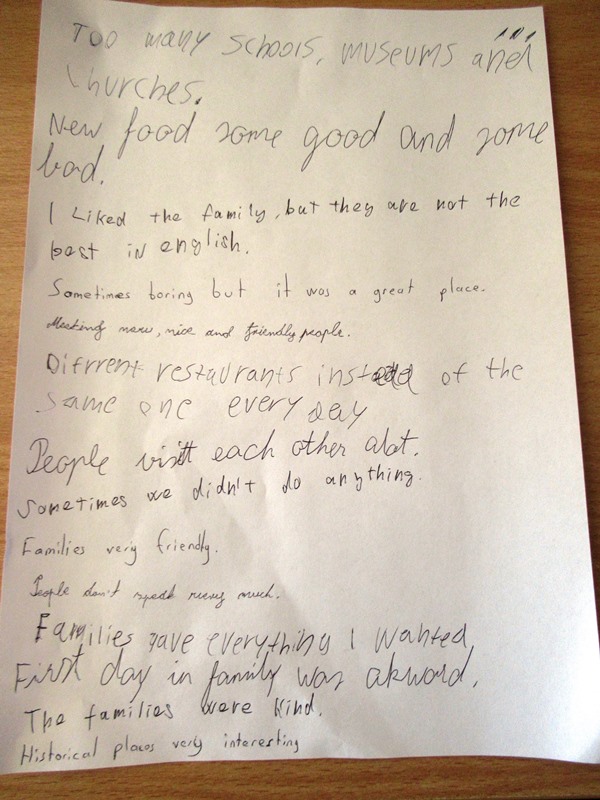 Too many schools, museums and
churches.
New food some good and some
bad.
I Liked the family, but they are not the
best in english.
Sometimes boring but it was a great place.
Meeting new, nice and friendly people.
Difrrent restaurants instead of the
same one every day
People visit each other alot.
Sometimes we didn't do anything.
Families very friendly.
People don't speak much.
Families gave everything I wanted,
First day in family was akword.
The families were kind.
Historical places very interesting